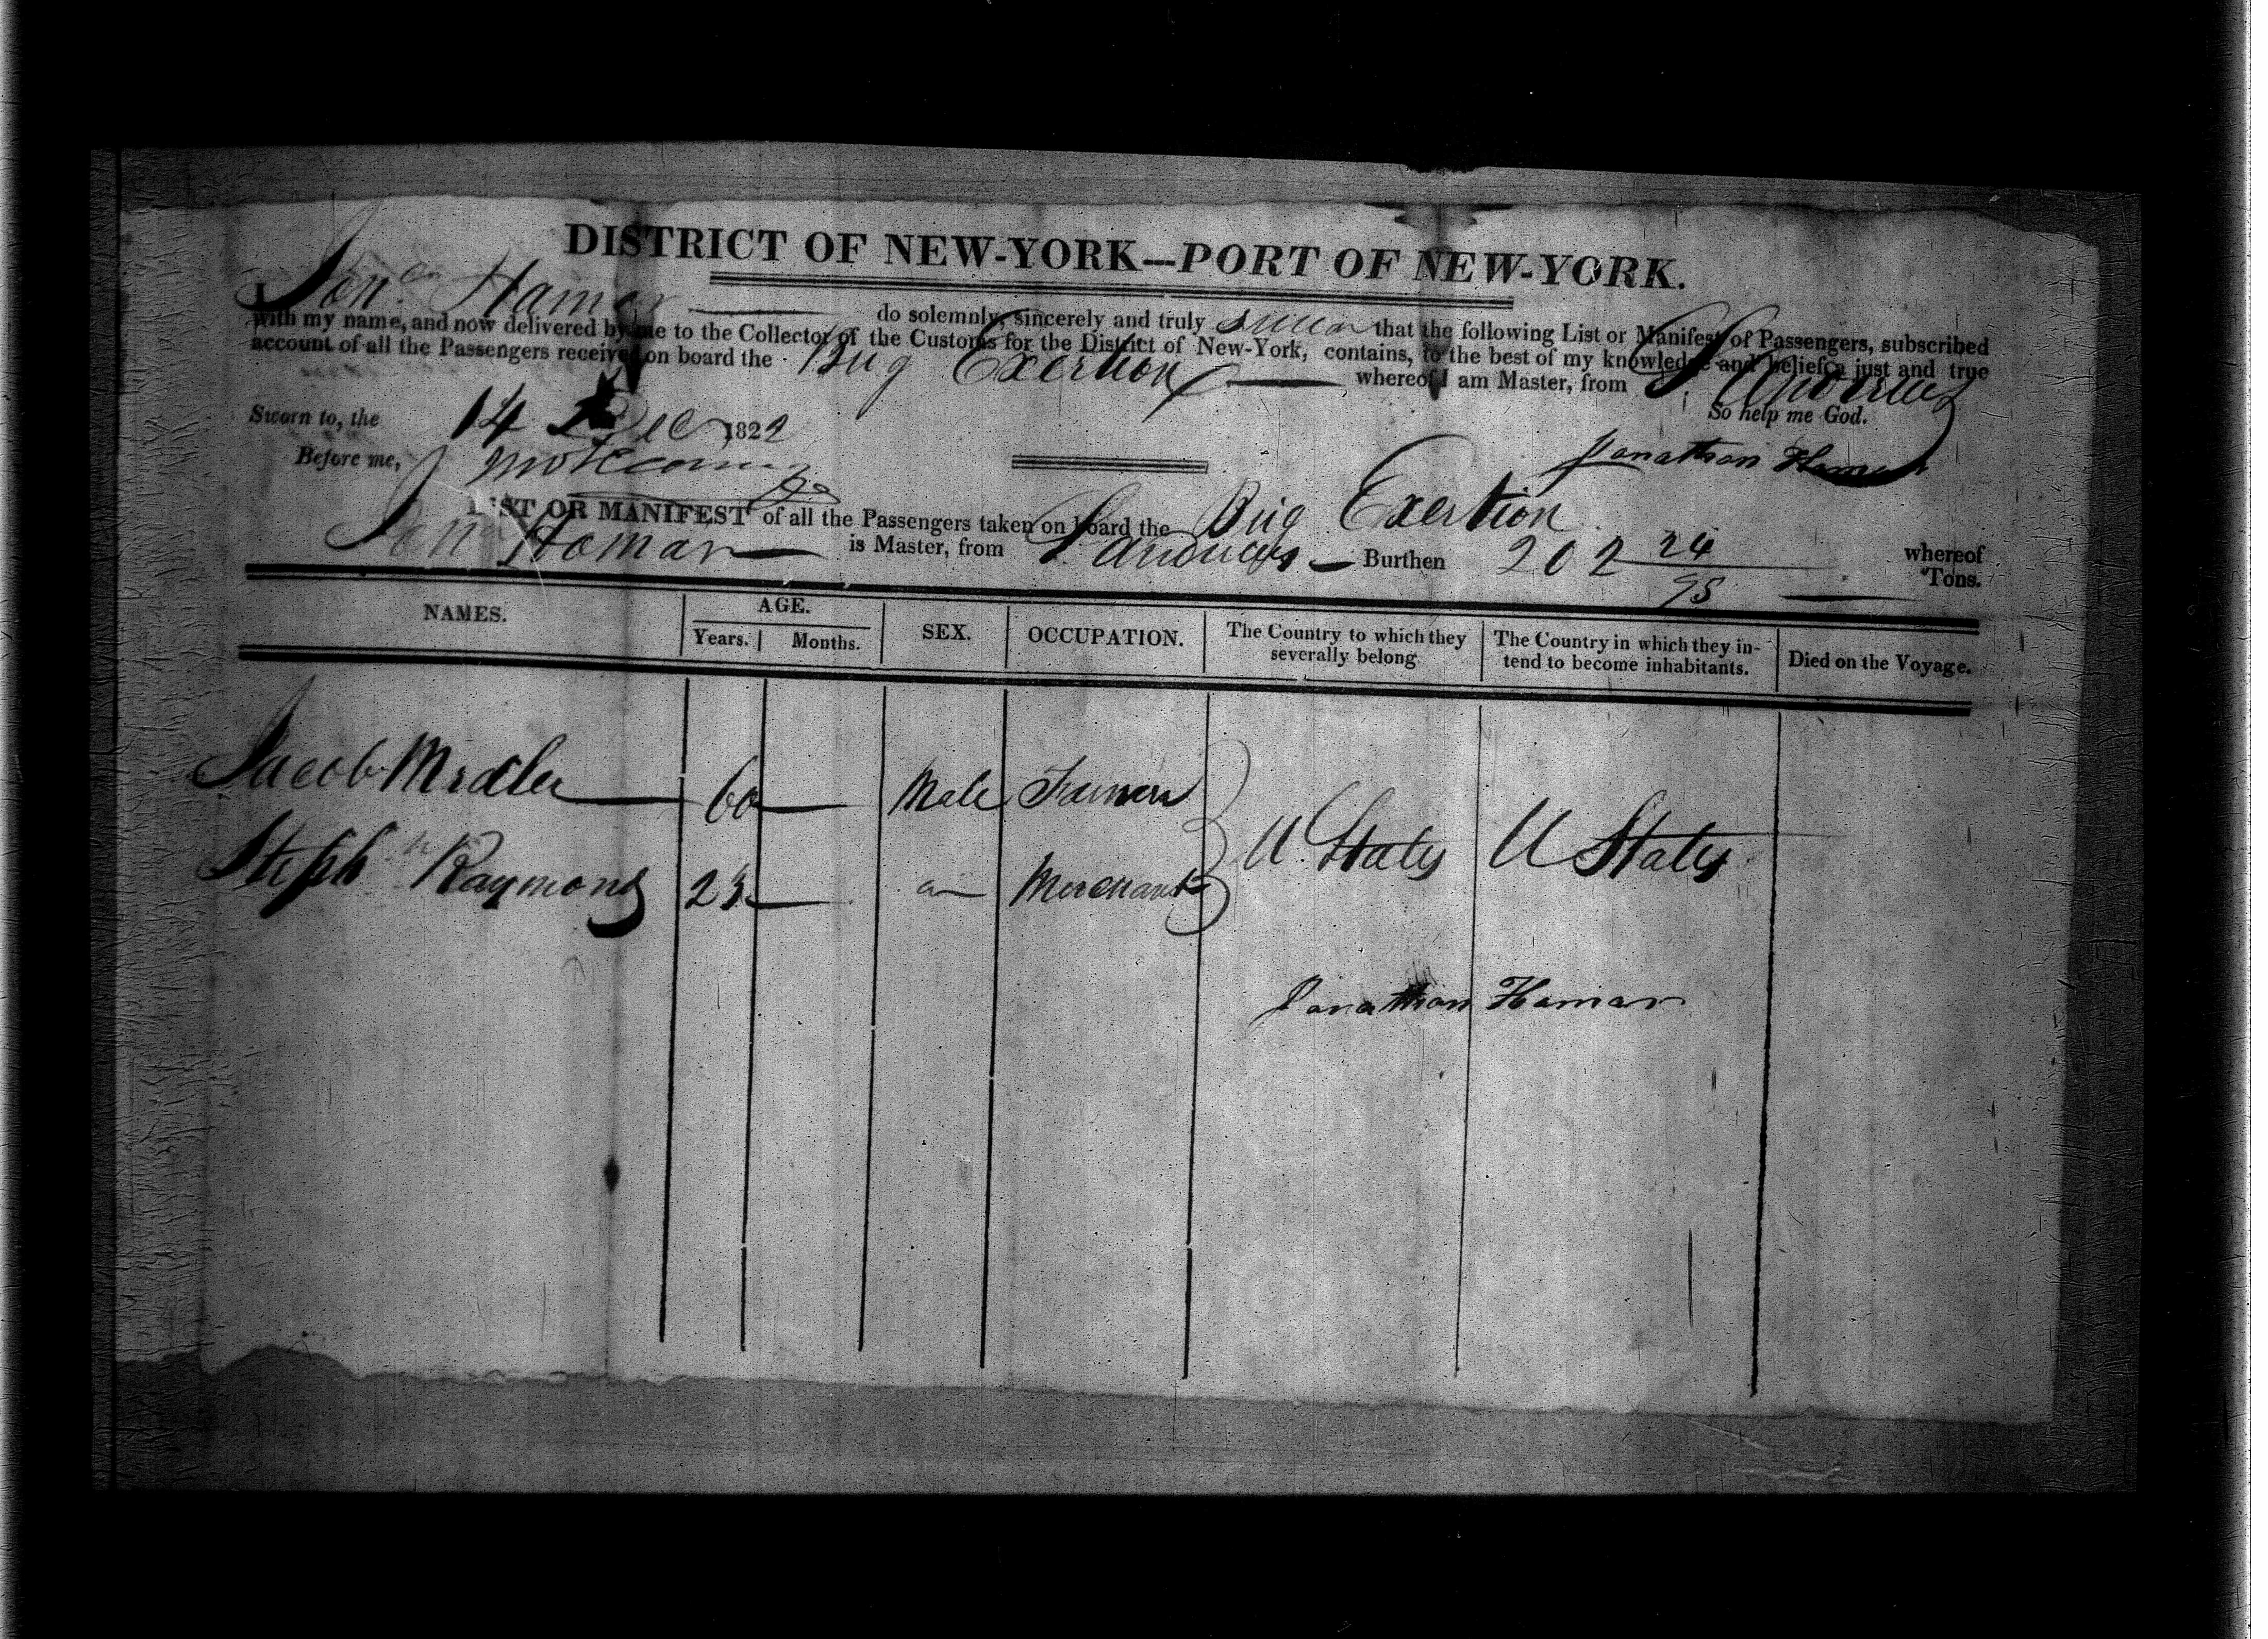 DISTRICT OF NEW-YORK—PORT OF NEW-YORK.
I Jonᵃ Hamar do solemnly, sincerely and truly swear that the following List or Manifest of Passengers, subscribed
with my name, and now delivered by me to the Collector of the Customs for the District of New-York, contains, to the best of my knowledge and belief, a just and true
account of all the Passengers received on board the Brig Exertion whereof I am Master, from
So help me God.
Sworn to, the 14 Dec 1822
Jonathan Hamar
Before me,
LIST OR MANIFEST of all the Passengers taken on board the Brig Exertion whereof
Jonᵃ Homar is Master, from Burthen 202 24/95 Tons.
NAMES. AGE. SEX. OCCUPATION. The Country to which they severally belong The Country in which they intend to become inhabitants. Died on the Voyage.
Years. Months.
Jacob 60 Male Farmer
U States U States
Stephn Raymond 23 Merchant
Jonathan Hamar